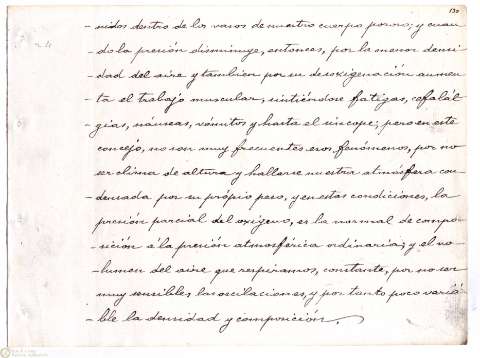 130
- nidos dentro de los vasos de nuestro cuerpo poroso; y cuan-
- do la presión disminuye, entonces, por la menor densi-
- dad del aire y tambien por su desoxigenación aumen-
- ta el trabajo muscular, sintiéndose fatigas, cefalál-
- gias, náuseas, vómitos y hasta el síncope; pero en este
- concejo, no son muy frecuentes esos fenómenos, por no
- ser clima de altura y hallarse nuestra atmósfera con-
- densada por su própio peso, y en estas condiciones, la
- presión parcial del oxígeno, es la normal de compo-
- sición á la presión atmosférica ordinaria; y el vo-
- lumen del aire que respiramos, constante, por no ser
- muy sensibles las oscilaciones, y por tanto poco varia-
- ble la densidad y composición.